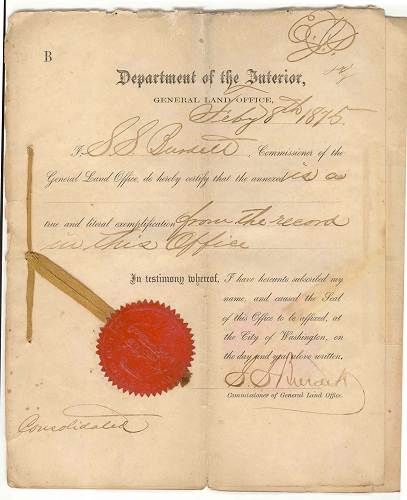 B
Department of the Interior,
GENERAL LAND OFFICE,
Feby 8th 1875.
I, S. S. Burdett, Commissioner of the
General Land Office, do hereby certify that the annexed is a
true and literal exemplification from the record
in this Office
In testimony whereof, I have hereunto subscribed my
name, and caused the Seal
of this Office to be affixed, at
the City of Washington, on
the day and year above written.
S. S. Burdett
Commissioner of General Land Office.
Consolidated